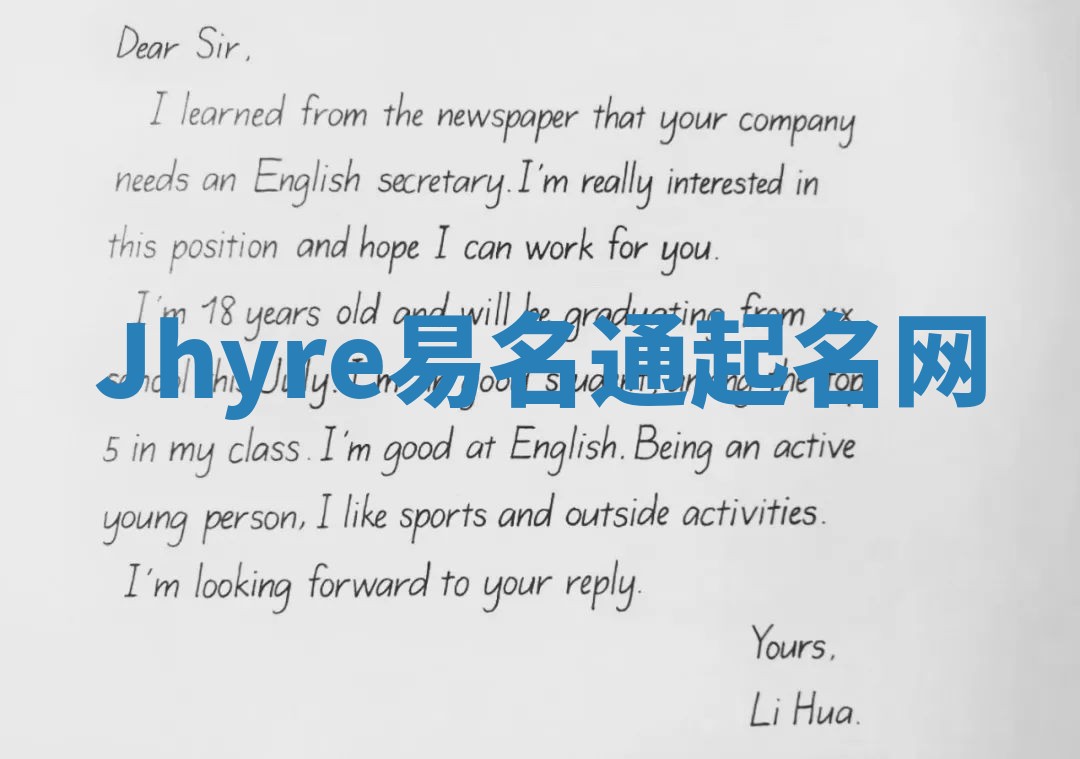 Dear Sir,
I learned from the newspaper that your company
needs an English secretary. I'm really interested in
this position and hope I can work for you.
I'm 18 years old and will be graduating from xx
Jhyre易名通起名网
school this July. I'm a good student, among the top
5 in my class. I'm good at English. Being an active
young person, I like sports and outside activities.
I'm looking forward to your reply.
Yours,
Li Hua.